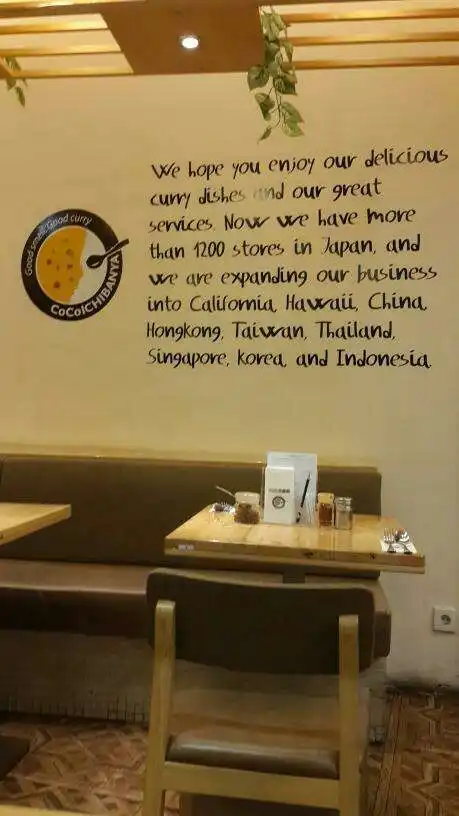 We hope you enjoy our delicious
curry dishes and our great
services. Now we have more
than 1200 stores in Japan, and
we are expanding our business
into California, Hawaii, China,
Hongkong, Taiwan, Thailand,
Singapore, Korea, and Indonesia.
Good smell, Good curry
CoCoICHIBANYA